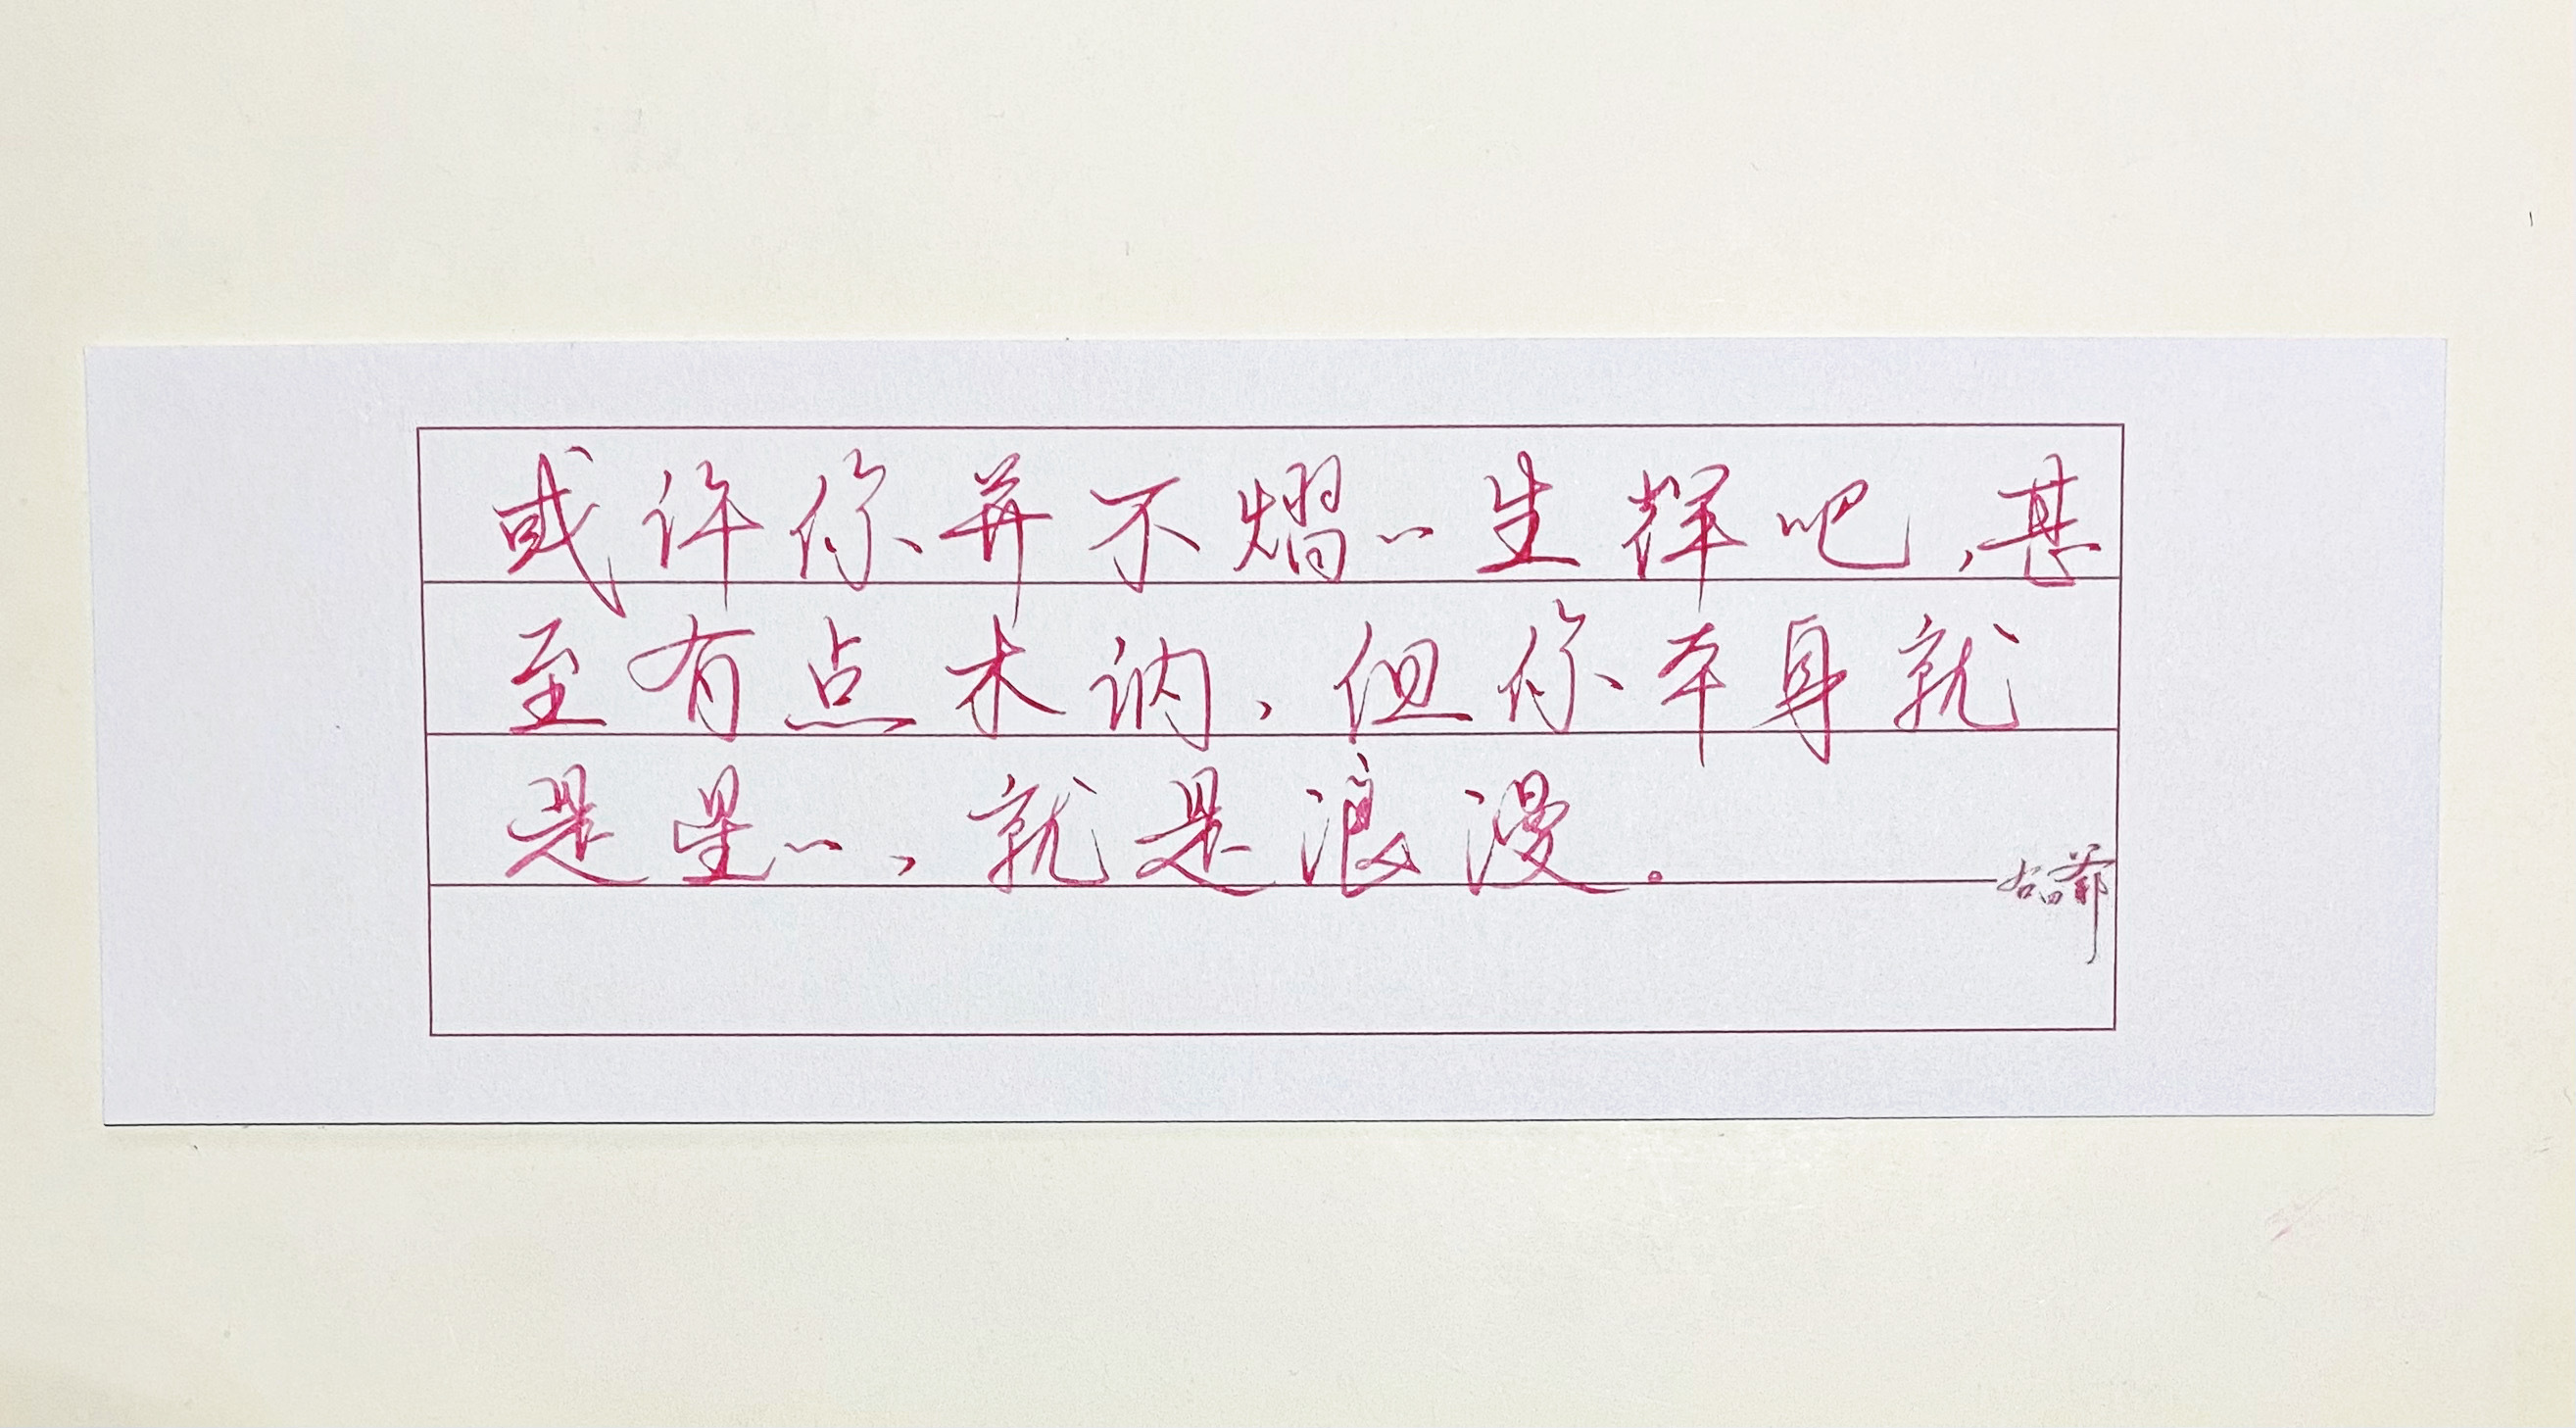 或许你并不熠々生辉吧,甚
至有点木讷,但你本身就
是星々,就是浪漫。